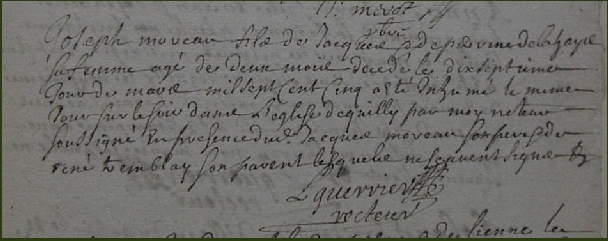 Joseph moreau fils de Jacques & de perrine delahaye
sa femme agé de deux mois decedé le dixseptieme
Jour de mars mil sept Cent Cinq a esté Inhumé le mesme
Jour sur le soir dans L'eglise de quilly par moy recteur
soussigné En presence dud. Jacques moreau son pere & de
rené tremblay son parent lesquels ne scavent signer &
L guerrier
recteur